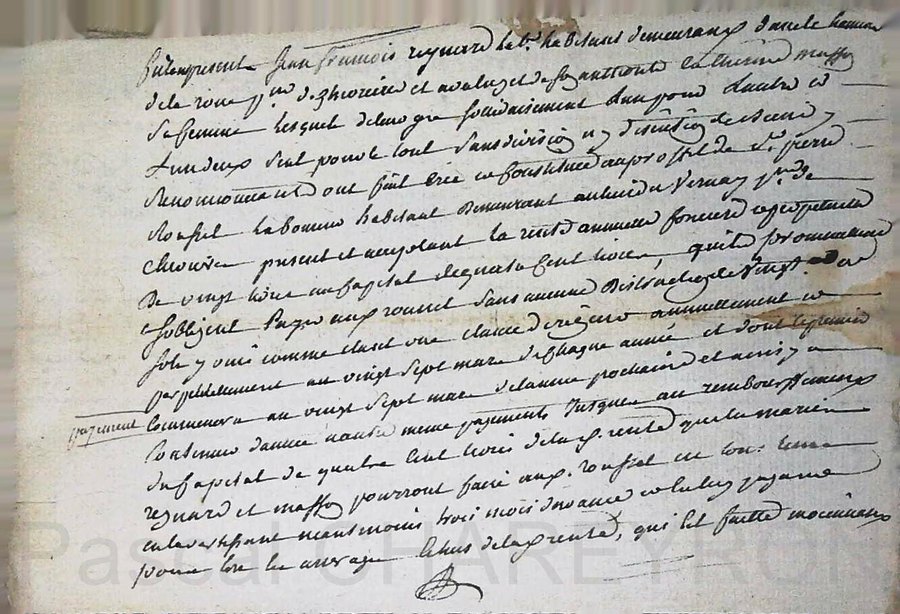 fut present Jean françois reynard lab.r habitant demeurant dans le hameau
de la roue de et avec luy et de son authorité Catherine masson
sa femme lesquels de leur gre solidairement l'un pour l'autre et
l'un deux seul pour le tout sans division ny discution de biens y
Renonceant ont fait crée et constitué au profit de s.r pierre
Rousset laboureur habitant demeurant au lieu du Vernay p.sse de
present et acceptant la rente annuelle fonciere et perpetuelle
De vingt livres au capital de quatre cent livres, qu'ils promettent et
s'obligent payer aux rousset sans aucune distraction de vingt.
sols y comme clause de rigueur annuellement et
perpetuellement au vingt sept mars de chaque année et dont le premier
payement Commencera au vingt sept mars de l'année prochaine et ainsi y a
Continuer d'année a autre meme payements Jusques au remboursement
du Capital de quatre Cent livres de la p. rente que les mariés
reynard et masson pourront faire aux p. rousset en tous tems
en avertissant neantmoins trois mois d'avance et en luy payant
pour lors les arerages echus de la p. rente, qui est faitte moiennant
Pascal CHAREYRON